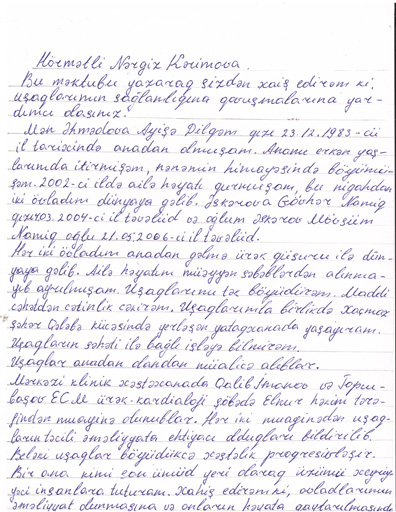 Hörmətli Nərgiz Kərimova.
Bu məktubu yazarag sizdən xaiş edirəm ki,
uşaglarımın sağlamlığına qovuşmalarına yar-
dımcı olasınız.
Mən Əhmədova Ayişə Dilqəm gızı 23.12.1983-cü
il tarixində anadan olmuşam. Anamı erkən yaş-
larımda itirmişəm, nənənin himayəsində böyümü-
şəm. 2002-ci ildə ailə həyatı gurmuşam, bu nigahdan
iki övladım dünyaya gəlib. Isgərova Gövhər Namig
2004-ci il təvəllüd və oğlum Əsgərov Mövsüm
Namig oğlu 21.05.2006-ci il təvəllüd.
Hər iki övladım anadan gəlmə ürək güsuru ilə dün-
yaya gəlib. Ailə həyatım müəyyən səbəblərdən alınma-
yıb ayrılmışam. Uşaglarımı tək böyüdürəm. Maddi
cəhətdən çətinlik çəkirəm. Uşaglarımla birlikdə Xaçmaz
şəhər Qələbə küçəsində yerləşən yataqxanada yaşayıram.
Uşagların səhəti ilə bağlı işləyə bilmirəm.
Uşaglar anadan olandan müalicə alıblar.
Mərkəzi klinik xəstəxanada Qalib Imanov və Topçu-
başov ECM ürək-kardioloji şöbədə Elnur həkim tərə-
findən muayinə olunublar. Hər iki muayinədən uşag-
ların təcili əməliyyata ehtiyacı olduğları bildirilib.
Belə ki uşaglar böyüdükcə xəstəlik progresivləşir.
Bir ana kimi son ümüid yeri olarag üzümü xeyriyyə
yəçi insanlara tuturam. Xahiş edirəm ki, övladlarımın
əməliyyat olunmasına və onların həyata qaytarılmasında